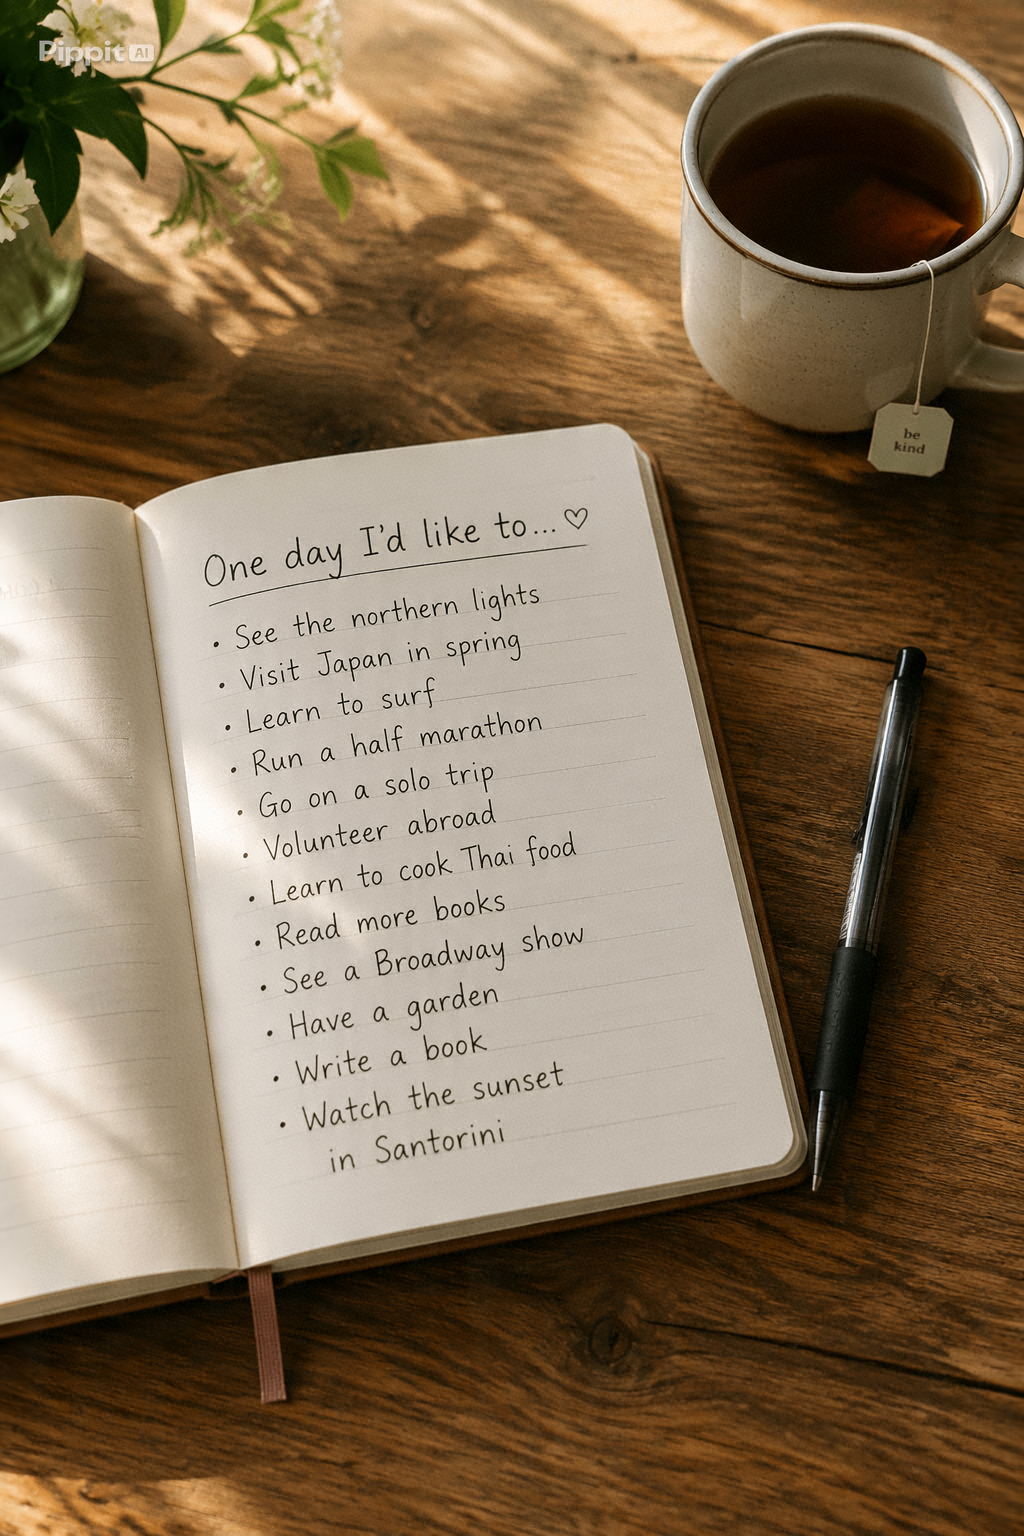 Pippit AI
be
kind
One day I'd like to... ♡
• See the northern lights
• Visit Japan in spring
• Learn to surf
• Run a half marathon
• Go on a solo trip
• Volunteer abroad
• Learn to cook Thai food
• Read more books
• See a Broadway show
• Have a garden
• Write a book
• Watch the sunset
in Santorini